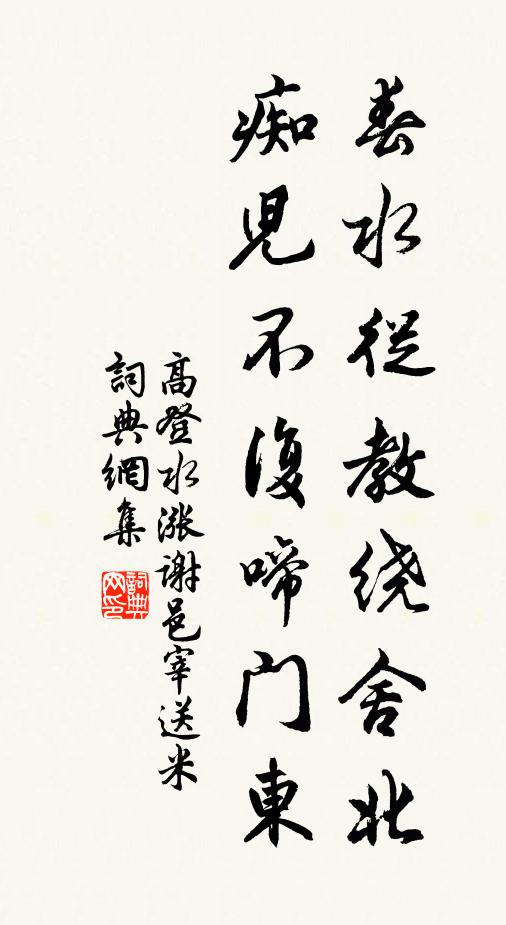 春水從教繞舍北
痴兒不復啼門東
高登水漲謝邑宰送米
詞典網集
詞典网印